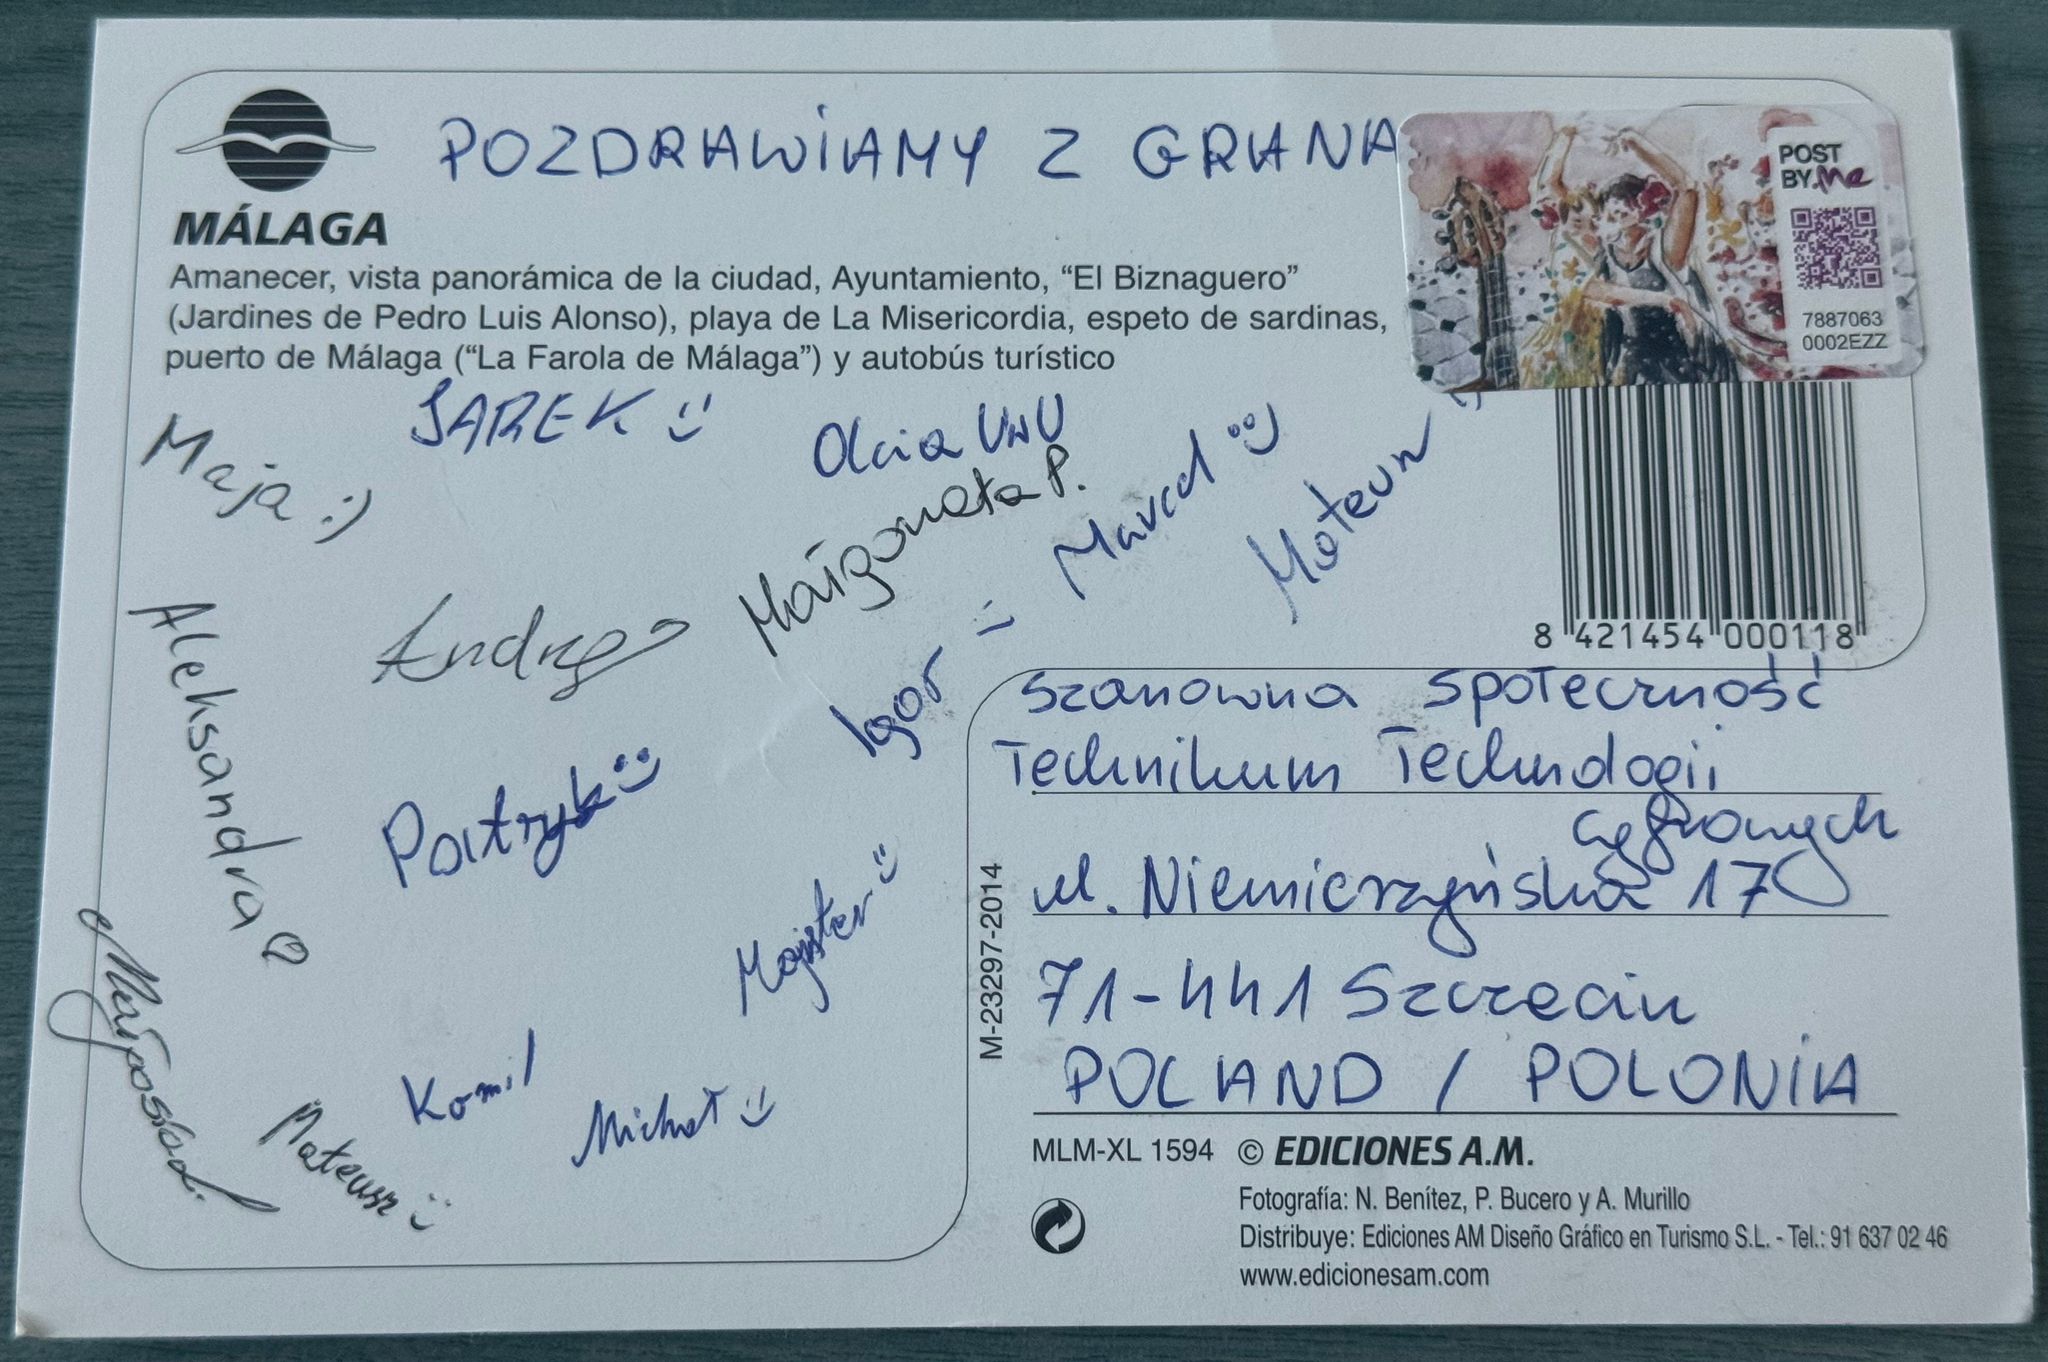 POZDRAWIAMY Z GRANA
POST
BY.Me
7887063
0002EZZ
MÁLAGA
Amanecer, vista panorámica de la ciudad, Ayuntamiento, “El Biznaguero”
(Jardines de Pedro Luis Alonso), playa de La Misericordia, espeto de sardinas,
puerto de Málaga (“La Farola de Málaga”) y autobús turístico
JAREK :)
Olcia UwU
Maja :)
Małgorzata P.
Marcel :)
Mateusz
8 421454 000118
Andrzej
Aleksandra ♡
Igor
Patryk :)
Majster :)
Kamil
Michał :)
Mateusz :)
M-23297-2014
Szanowna Społeczność
Technikum Technologii
Cyfrowych
ul. Niemierzyńska 17
71-441 Szczecin
POLAND / POLONIA
MLM-XL 1594 © EDICIONES A.M.
Fotografía: N. Benítez, P. Bucero y A. Murillo
Distribuye: Ediciones AM Diseño Gráfico en Turismo S.L. - Tel.: 91 637 02 46
www.edicionesam.com